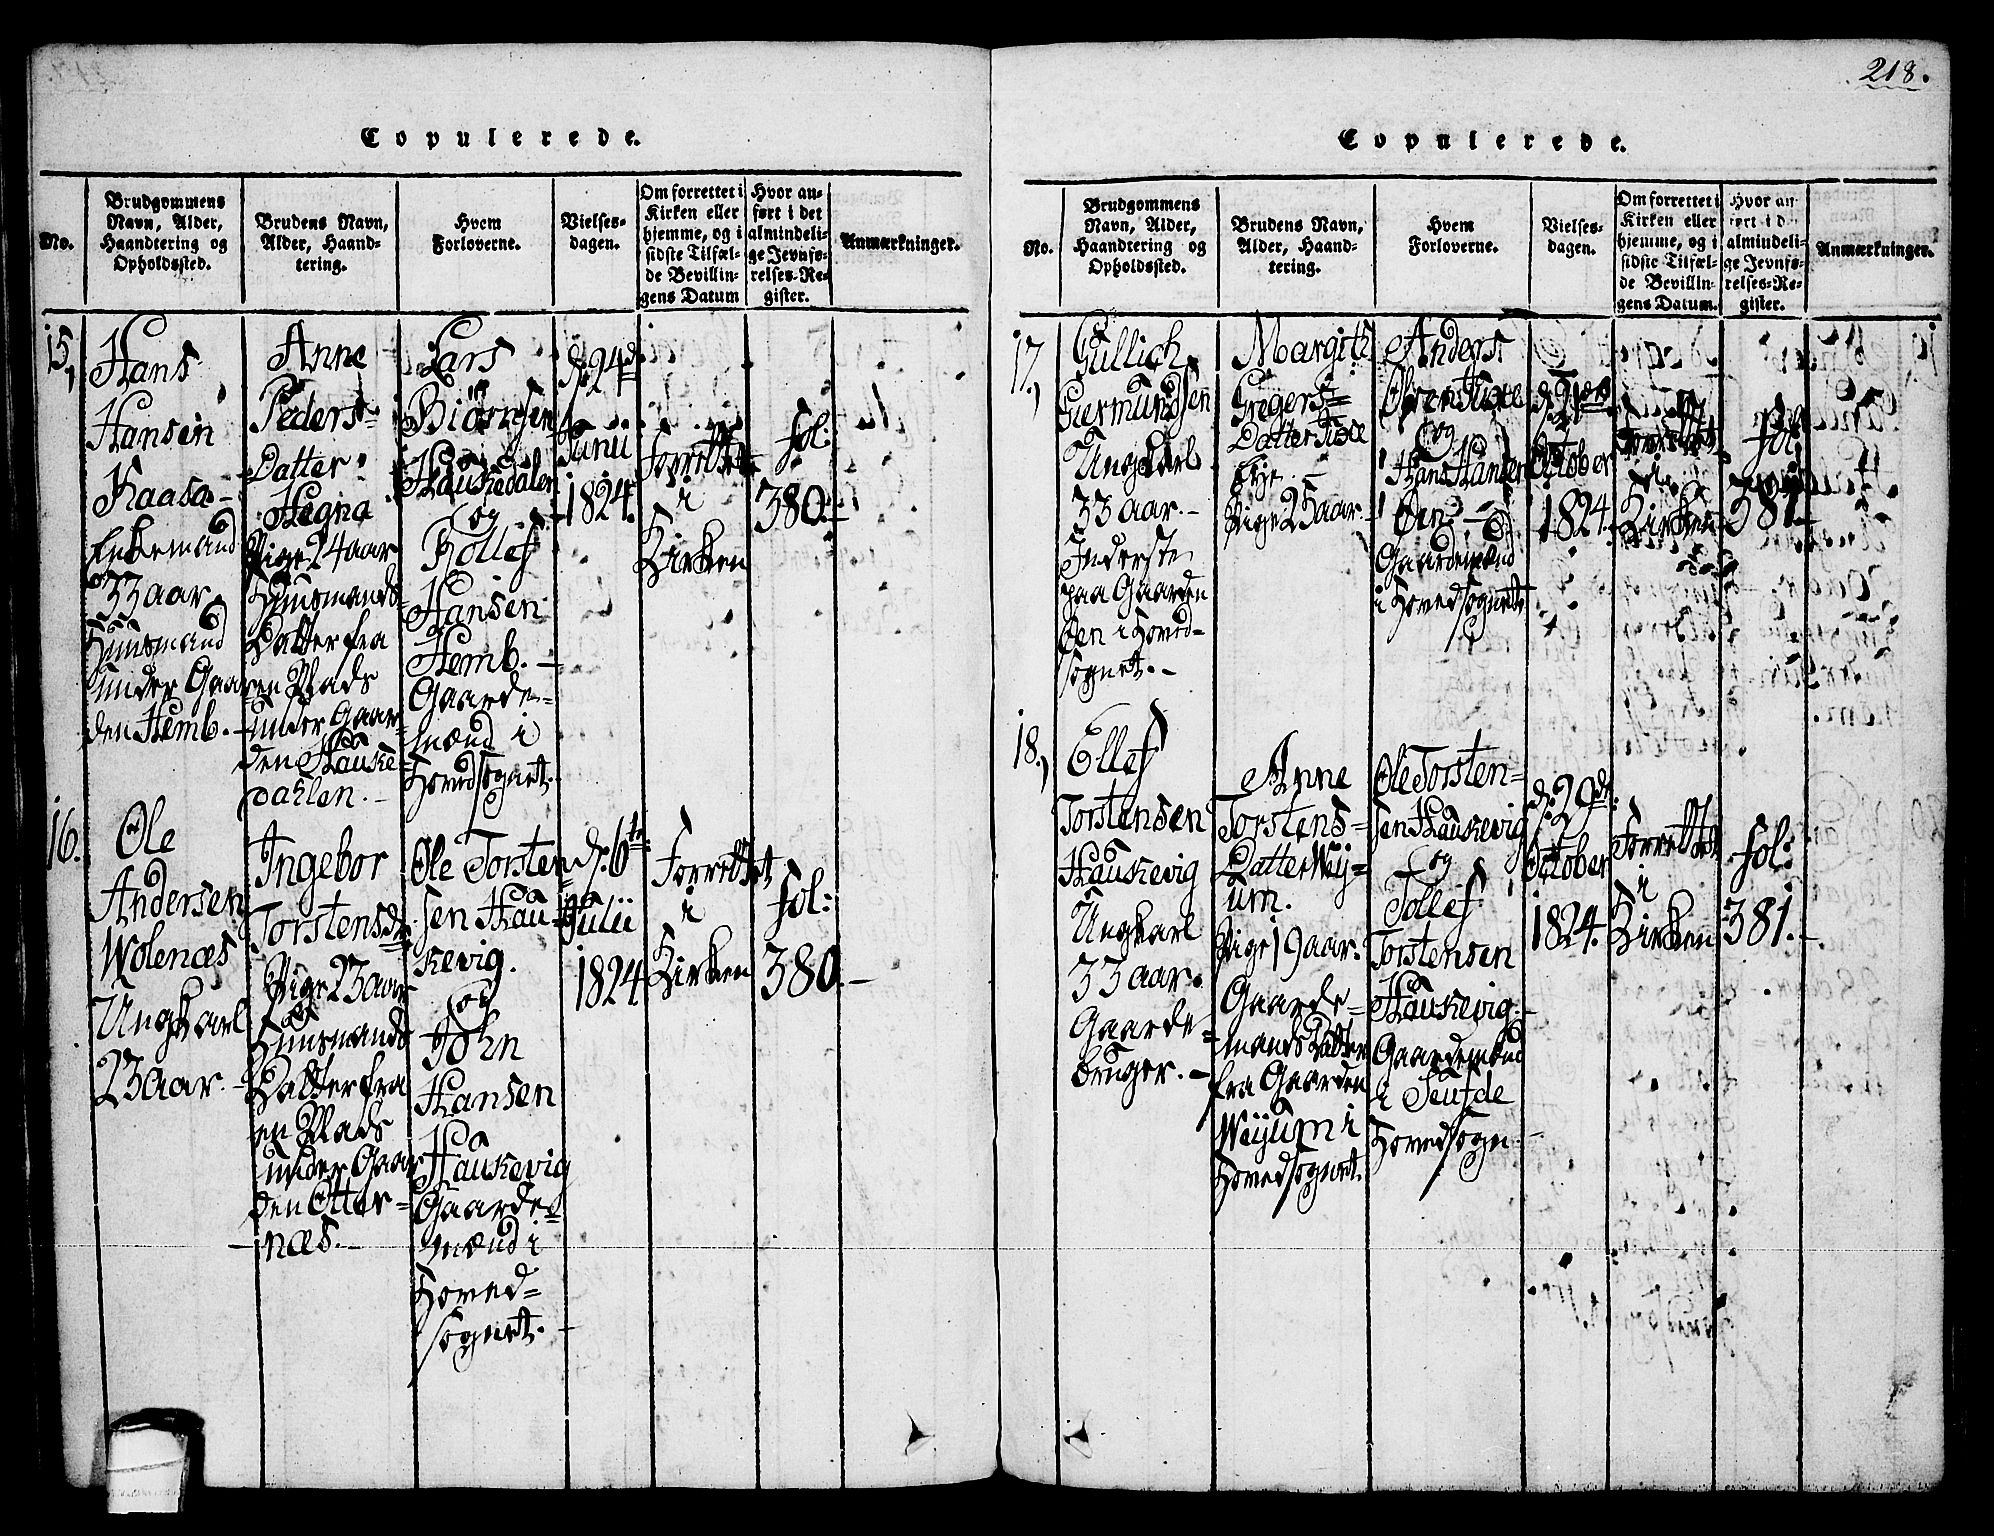 218.
Copulerede.
No.
Brudgommens
Navn, Alder,
Haandtering og
Opholdssted.
Brudens Navn,
Alder, Haand-
tering.
Hvem
Forloverne.
Vielses-
dagen.
Om forrettet i
Kirken eller
hjemme, og i
sidste Tilfæl-
de Bevillin-
gens Datum
Hvor an-
ført i det
almindeli-
ge Jevnfø-
relses-Re-
gister.
Anmærkninger.
15,
Hans
Hansen
Kaasa
Enkemand
33 aar.
Huusmand
under Gaar
den Hemb. -
Anne
Peders-
Datter
Hegna
Pige 24 aar
Huusmands
Datter fra
en Plads
under Gaar-
den Hauke-
dahlen. -
Lars
Biörnsen
Haukedalen
og
Tollef
Hansen
Hemb. -
Gaarde-
mænd i
Hovedsognet.
d. 24d
Junii
1824.
Forrettet
i
Kirken
fol:
380. -
16.
Ole
Andersen
Wolenæs
Ungkarl
23 aar. -
Ingebor
Torstensd
Pige 23 aar
Huusmands
Datter fra
en Plads
under Gaar
den Otter-
næs. -
Ole Torsten
sen Hau-
kevig.
og
John
Hansen
Haukevig
Gaarde-
mænd i
Hoved-
sognet. -
d. 6te
Julii
1824
Forrettet
i
Kirken
fol:
380. -
Copulerede.
No.
Brudgommens
Navn, Alder,
Haandtering og
Opholdssted.
Brudens Navn,
Alder, Haand-
tering.
Hvem
Forloverne.
Vielses-
dagen.
Om forrettet i
Kirken eller
hjemme, og i
sidste Tilfæl-
de Bevillin-
gens Datum.
Hvor an
ført i d
almindeli-
ge Jevnfø-
relses-Re-
gister.
Anmærkninger.
17.,
Gullich
Giermundsen
Ungkarl
33 aar. -
Inderste
paa Gaarden
Øen i Hoved-
sognet. -
Margith
Gregers-
Datter
Pige 25 aar. -
Anders
og
Hans Hansen
Øen -
Gaardemænd
i Hovedsognet
October
1824.
Forrettet
i
Kirken
fol.
381. -
18.,
Ellef
Torstensen
Haukevig
Ungkarl
33 aar.
Gaarde-
bruger. -
Anne
Torstens-
Datter Weij-
um.
Pige 19 aar.
Gaarde-
mands Datter
fra Gaarden
Weijum i
Hovedsognet.
Ole Torsten-
sen Haukevig
og
Tollef
Torstensen
Haukevig. -
Gaardemænd
i Seufde
Hovedsogn. -
d. 29d
October
1824.
Forrettet
i
Kirken
fol:
381. -